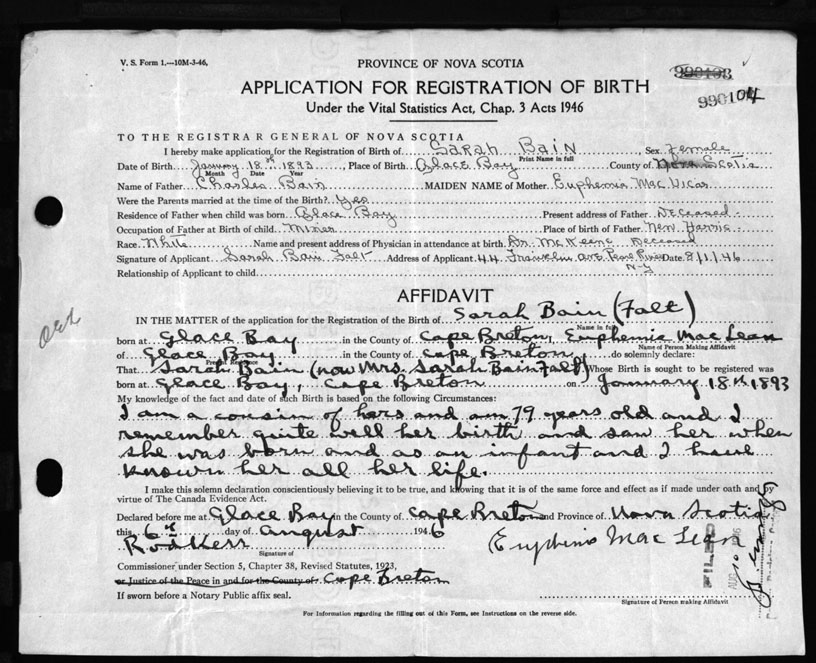 V. S. Form 1.—10M-3-46.
PROVINCE OF NOVA SCOTIA
990103
990104
APPLICATION FOR REGISTRATION OF BIRTH
Under the Vital Statistics Act, Chap. 3 Acts 1946
TO THE REGISTRAR GENERAL OF NOVA SCOTIA
I hereby make application for the Registration of Birth of Sarah Bain Sex Female
Print Name in full
Date of Birth January 18th 1893 Place of Birth Glace Bay County of Nova Scotia
Month Date Year
Name of Father Charles Bain MAIDEN NAME of Mother Euphemia MacVicar
Were the Parents married at the time of the Birth? Yes
Residence of Father when child was born Glace Bay Present address of Father Deceased
Occupation of Father at Birth of child Miner Place of birth of Father New Harris
Race White Name and present address of Physician in attendance at birth Dr. McKeene Deceased
Signature of Applicant Sarah Bain Falt Address of Applicant 44 Franklin Ave Pearl River Date 8/1/46
N-Y
Relationship of Applicant to child
AFFIDAVIT
IN THE MATTER of the application for the Registration of Birth of Sarah Bain (Falt)
Name in full
born at Glace Bay in the County of Cape Breton, Euphemia MacLean
Name of Person Making Affidavit
of Glace Bay in the County of Cape Breton do solemnly declare:
Present Residence
That Sarah Bain (now Mrs. Sarah Bain Falt) Whose Birth is sought to be registered was
born at Glace Bay, Cape Breton on January 18th 1893
My knowledge of the fact and date of such Birth is based on the following Circumstances:
I am a cousin of hers and am 79 years old and I
remember quite well her birth and saw her when
she was born and as an infant and I have
known her all her life.
I make this solemn declaration conscientiously believing it to be true, and knowing that it is of the same force and effect as if made under oath and by
virtue of The Canada Evidence Act.
Declared before me at Glace Bay in the County of Cape Breton and Province of Nova Scotia
this 6th day of August 1946
Euphemia MacLean
Signature of
Commissioner under Section 5, Chapter 38, Revised Statutes, 1923,
or Justice of the Peace in and for the County of Cape Breton
If sworn before a Notary Public affix seal.
Signature of Person making Affidavit
FILED
AUG 10
For Information regarding the filling out of this Form, see Instructions on the reverse side.